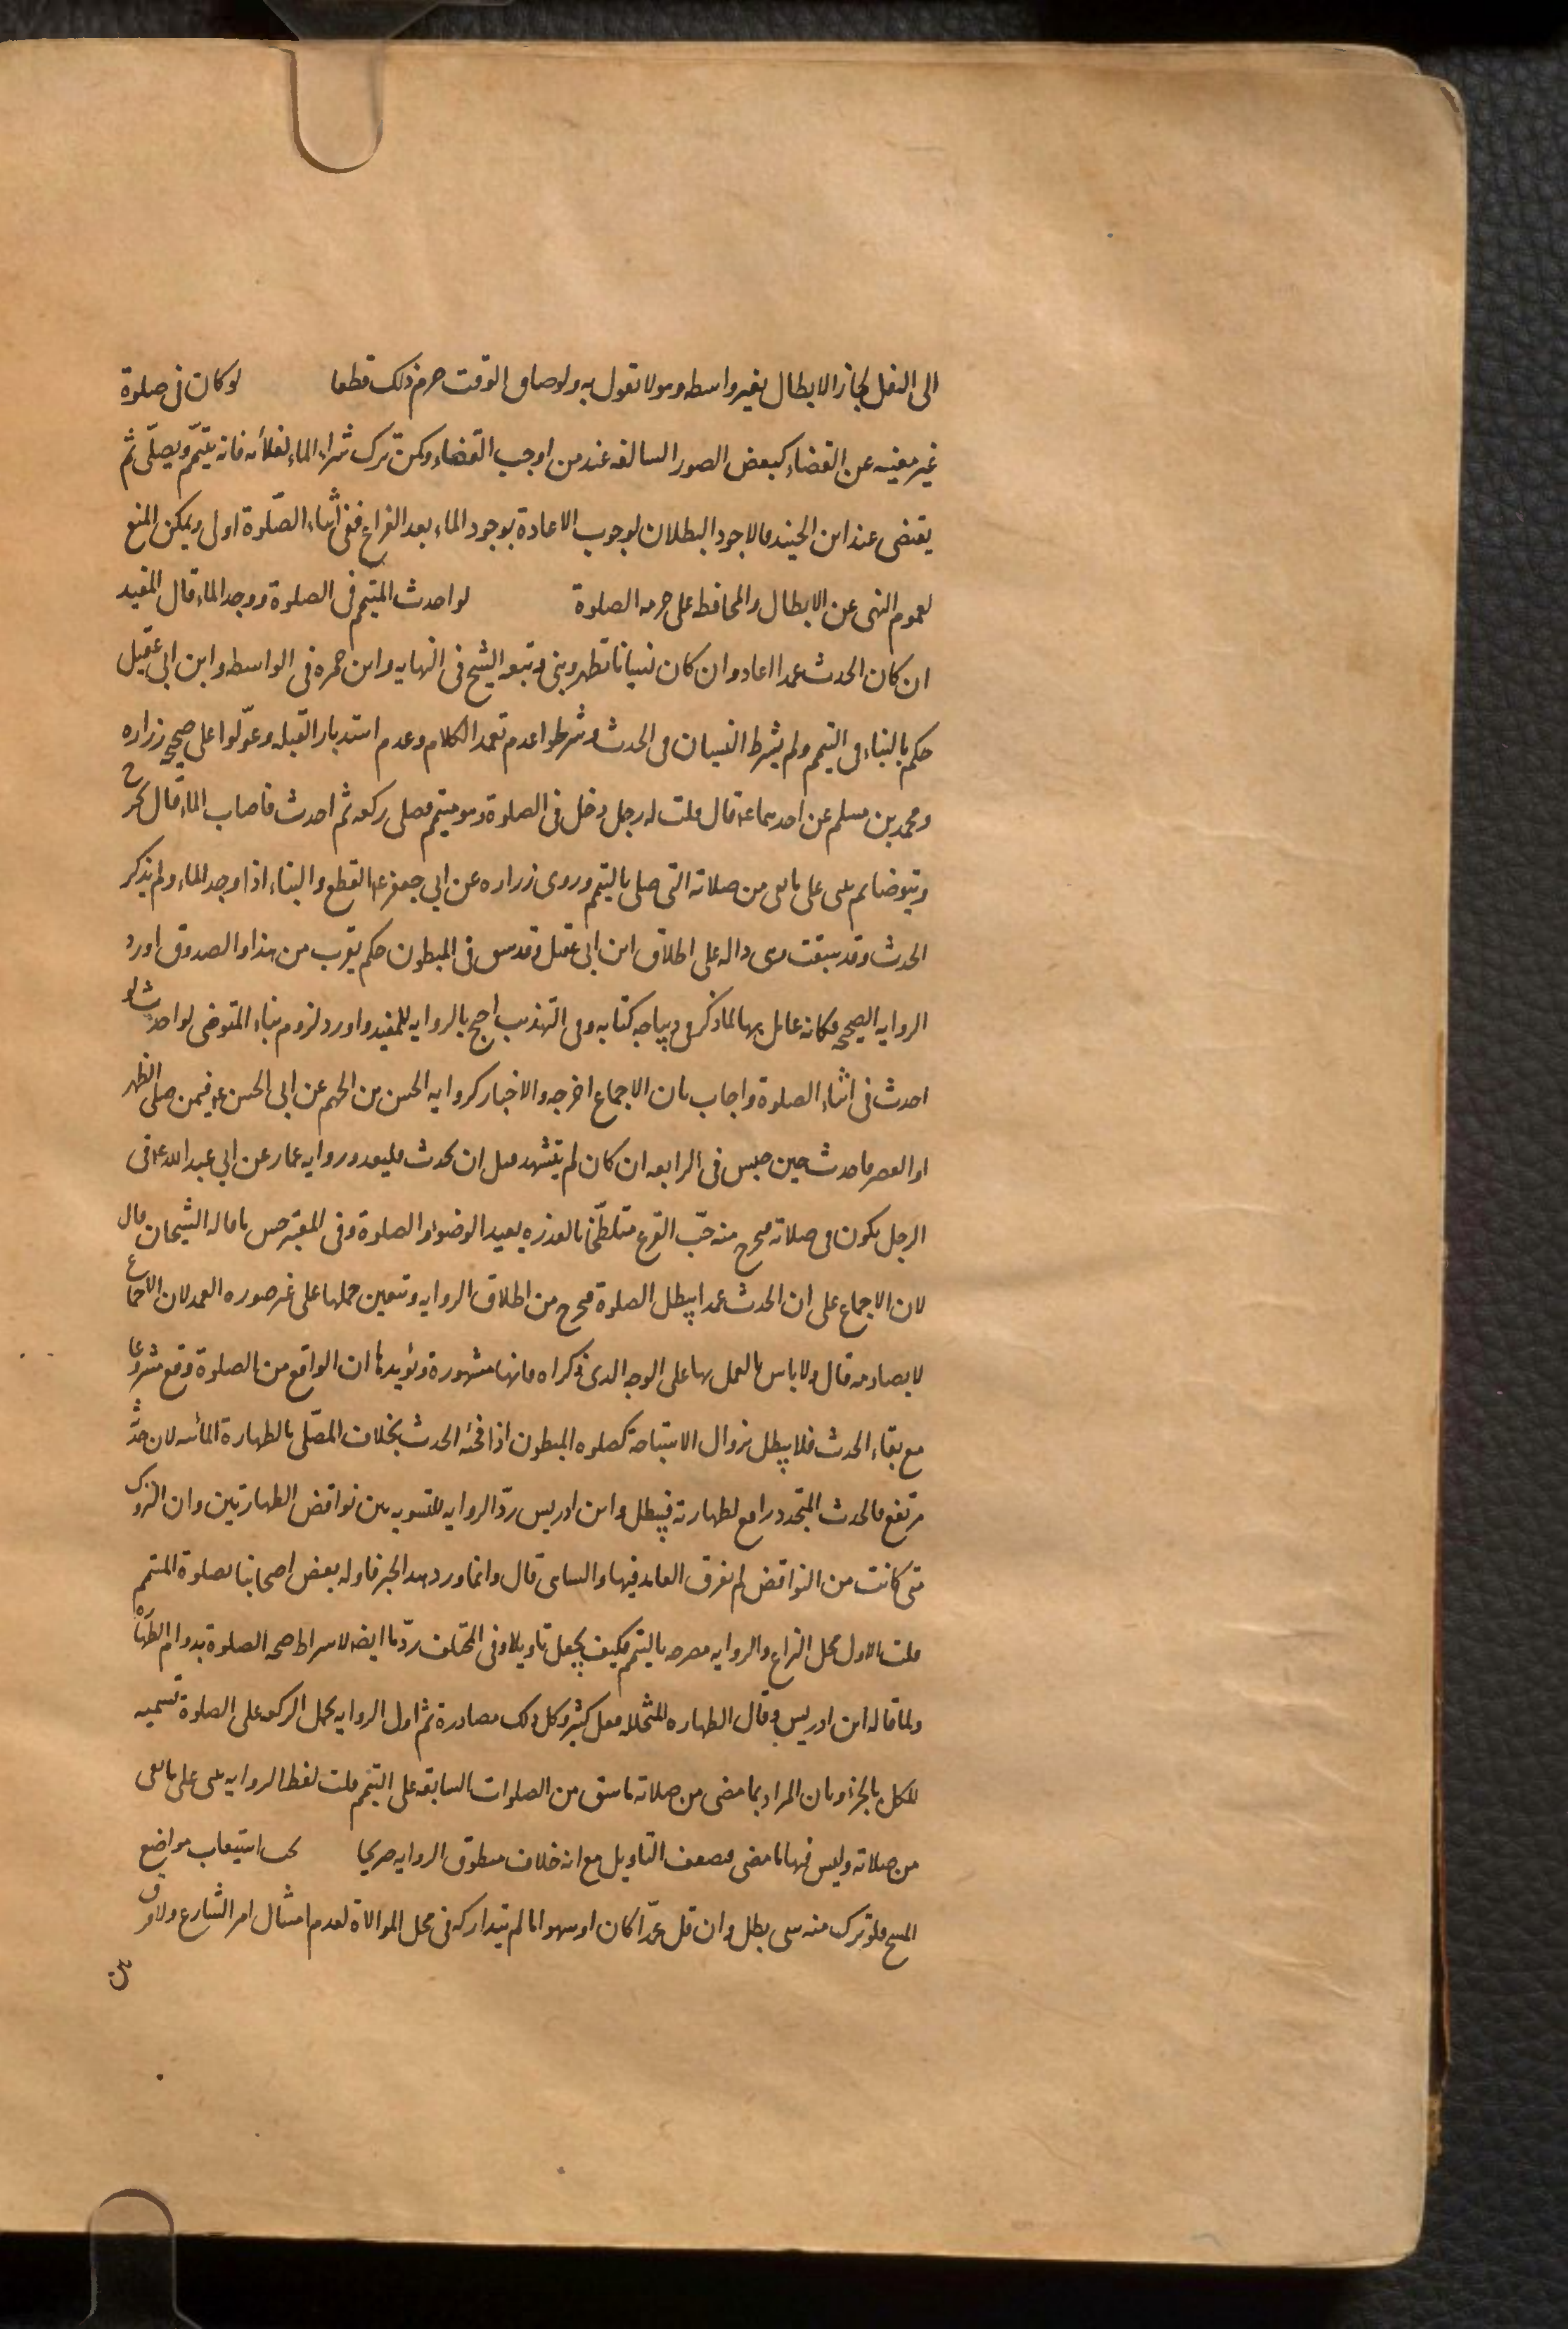 الى النفل لجاز الابطال بغير واسطه وهو لا نقول به ولو ضاق الوقت حرم ذلك قطعا لو كان فى صلوة
غير مغنيه عن القضاء كبعض الصور السالفه عند من اوجب القضاء وكمن ترك شراء الماء لغلائه فانه يتيمّم ويصلّى ثم
يقضى عند ابن الجنيد فالاجود البطلان لوجوب الاعادة بوجود الماء بعد الفراغ ففى اثناء الصّلوة اولى ويمكن المنع
لعموم النهى عن الابطال والمحافظه على حرمه الصلوة لو احدث المتيمم فى الصلوة ووجد الماء قال المفيد
ان كان الحدث عمدا اعاد وان كان نسيانا تطهر وبنى وتبعه الشيخ فى النهايه وابن حمزه فى الواسطه وابن ابى عقيل
حكم بالبناء فى التيمم ولم يشرط النسيان فى الحدث وشرطوا عدم تعمد الكلام وعدم استدبار القبله وعوّلوا على صحيح زراره
ومحمد بن مسلم عن احدهما ع قال قلت له رجل دخل فى الصلوة وهو متيمم فصلى ركعه ثم احدث فاصاب الماء قال يخرج
ويتوضا ثم يبنى على ما بقى من صلاته التى صلى بالتيمم وروى زراره عن ابى جعفر ع القطع والبناء اذا وجد الماء ولم يذكر
الحدث وقد سبقت وهى داله على اطلاق ابن ابى عقيل وقد سبق فى المبطون حكم يقرب من هذا والصدوق اورد
الروايه الصحيحه فكانه عامل بها لما ذكر فى ديباجه كتابه وفى التهذيب احتج بالروايه للمفيد واورد لزوم بناء المتوضى لو احدث لو
احدث فى اثناء الصلوة واجاب بان الاجماع اخرجه والاخبار كروايه الحسن بن الجهم عن ابى الحسن ع فيمن صلى الظهر
او العصر فاحدث حين جلس فى الرابعه ان كان لم يتشهد قبل ان يحدث فليعد وروايه عمار عن ابى عبد الله ع فى
الرجل يكون فى صلاته فيخرج منه حبّ القرع متلطّخا بالعذره يعيد الوضوء والصلوة وفى المعتبر خص ما قاله الشيخان قال
لان الاجماع على ان الحدث عمدا يبطل الصلوة فيخرج من اطلاق الروايه وتتعين حملها على غير صوره العمد لان الاجماع
لا يصادمه قال ولا باس بالعمل بها على الوجه الذى ذكراه فانها مشهورة ويؤيدها ان الواقع من الصلوة وقع مشروعا
مع بقاء الحدث فلا يبطل بزوال الاستباحه كصلوه المبطون اذا فجئه الحدث بخلاف المصّلى بالطهارة المائيه لان حدثه
مرتفع فالحدث المتجدد رافع لطهارته فيبطل وابن ادريس ردّ الروايه للتسويه بين نواقض الطهارتين وان التروك
متى كانت من النواقض لم يفرق العامد فيها والساهى قال وانما ورد هذا الخبر فاوله بعض اصحابنا بصلوة المتيمم
قلت الاول محل النزاع والروايه مصرحه بالتيمم فكيف يجعل تاويلا وفى المختلف ردّها ايضا لاشراط صحه الصلوة بدوام الطهاره
ولما قاله ابن ادريس وقال الطهاره المتخلله فعل كثير وكل ذلك مصادرة ثم اول الروايه بحمل الركعه على الصلوة تسميه
للكل بالجزء وبان المراد بما مضى من صلاته ما سبق من الصلوات السابقه على التيمم قلت لفظ الروايه يبنى على ما بقى
من صلاته وليس فيها ما مضى فضعف التاويل مع انه خلاف منطوق الروايه صريحا يجب استيعاب مواضع
المسح فلو ترك منه شى بطل وان قل عمدا كان او سهوا ما لم يتداركه فى محل الموالاة لعدم امتثال امر الشارع ولا فرق